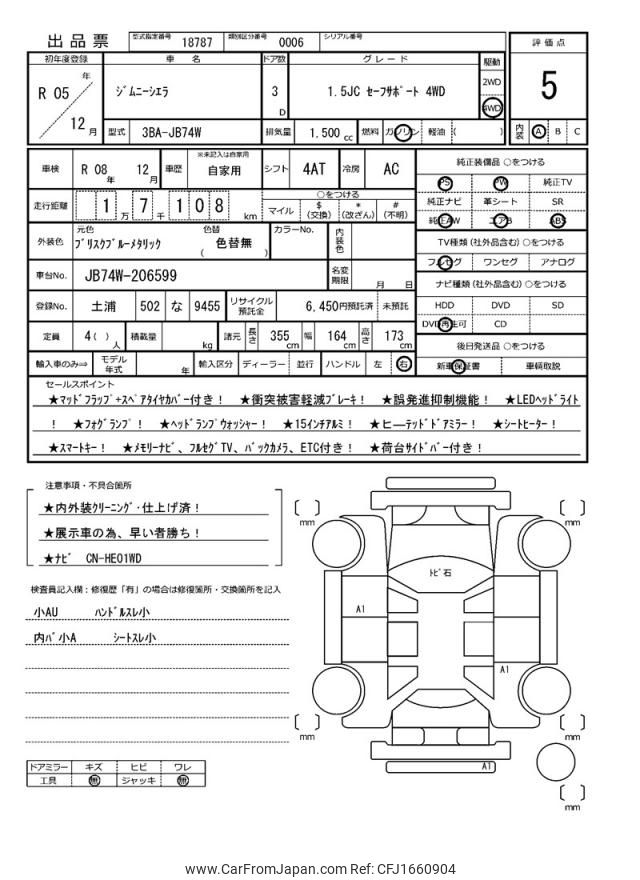 出品票 型式指定番号 18787 類別区分番号 0006 シリアル番号
評価点
5
初年度登録 車名 ドア数 グレード 駆動
R 05 年 12 月 ジムニーシエラ 3 D 1.5JC セーフサポート 4WD 2WD 4WD
型式 3BA-JB74W 排気量 1.500 cc 燃料 ガソリン 軽油 ( )
内装 A B C
車検 R 08 年 12 月 車歴 ※未記入は自家用 自家用 シフト 4AT 冷房 AC
走行距離 1 万 7 千 1 0 8 km
○をつける
マイル $ (交換) * (改ざん) # (不明)
純正装備品 ○をつける
PS PW 純正TV
純正ナビ 革シート SR
純正AW エアB ABS
外装色 元色 ブリスクブルーメタリック 色替 ( 色替無 ) カラーNo. 内装色
TV種類 (社外品含む) ○をつける
フルセグ ワンセグ アナログ
車台No. JB74W-206599 名変期限 月 日
ナビ種類 (社外品含む) ○をつける
HDD DVD SD
DVD再生可 CD
登録No. 土浦 502 な 9455 リサイクル預託金 6,450円預託済 未預託
定員 4 ( ) 人 積載量 kg 諸元 長さ 355 cm 幅 164 cm 高さ 173 cm
後日発送品 ○をつける
新車保証書 車輌取説
輸入車のみ⇨ モデル年式 年 輸入区分 ディーラー 並行 ハンドル 左 右
セールスポイント
★マッドフラップ+スペアタイヤカバー付き! ★衝突被害軽減ブレーキ! ★誤発進抑制機能! ★LEDヘッドライト
! ★フォグランプ! ★ヘッドランプウォッシャー! ★15インチアルミ! ★ヒーテッドドアミラー! ★シートヒーター!
★スマートキー! ★メモリーナビ、フルセグTV、バックカメラ、ETC付き! ★荷台サイドバー付き!
注意事項・不具合箇所
★内外装クリーニング・仕上げ済!
★展示車の為、早い者勝ち!
★ナビ CN-HE01WD
検査員記入欄:修復歴「有」の場合は修復箇所・交換箇所を記入
小AU ハンドルスレ小
内バ小A シートスレ小
mm
mm
トビ石
A1
A1
mm
mm
A1
mm
ドアミラー キズ ヒビ ワレ
工具 無 ジャッキ 無
www.CarFromJapan.com Ref: CFJ1660904